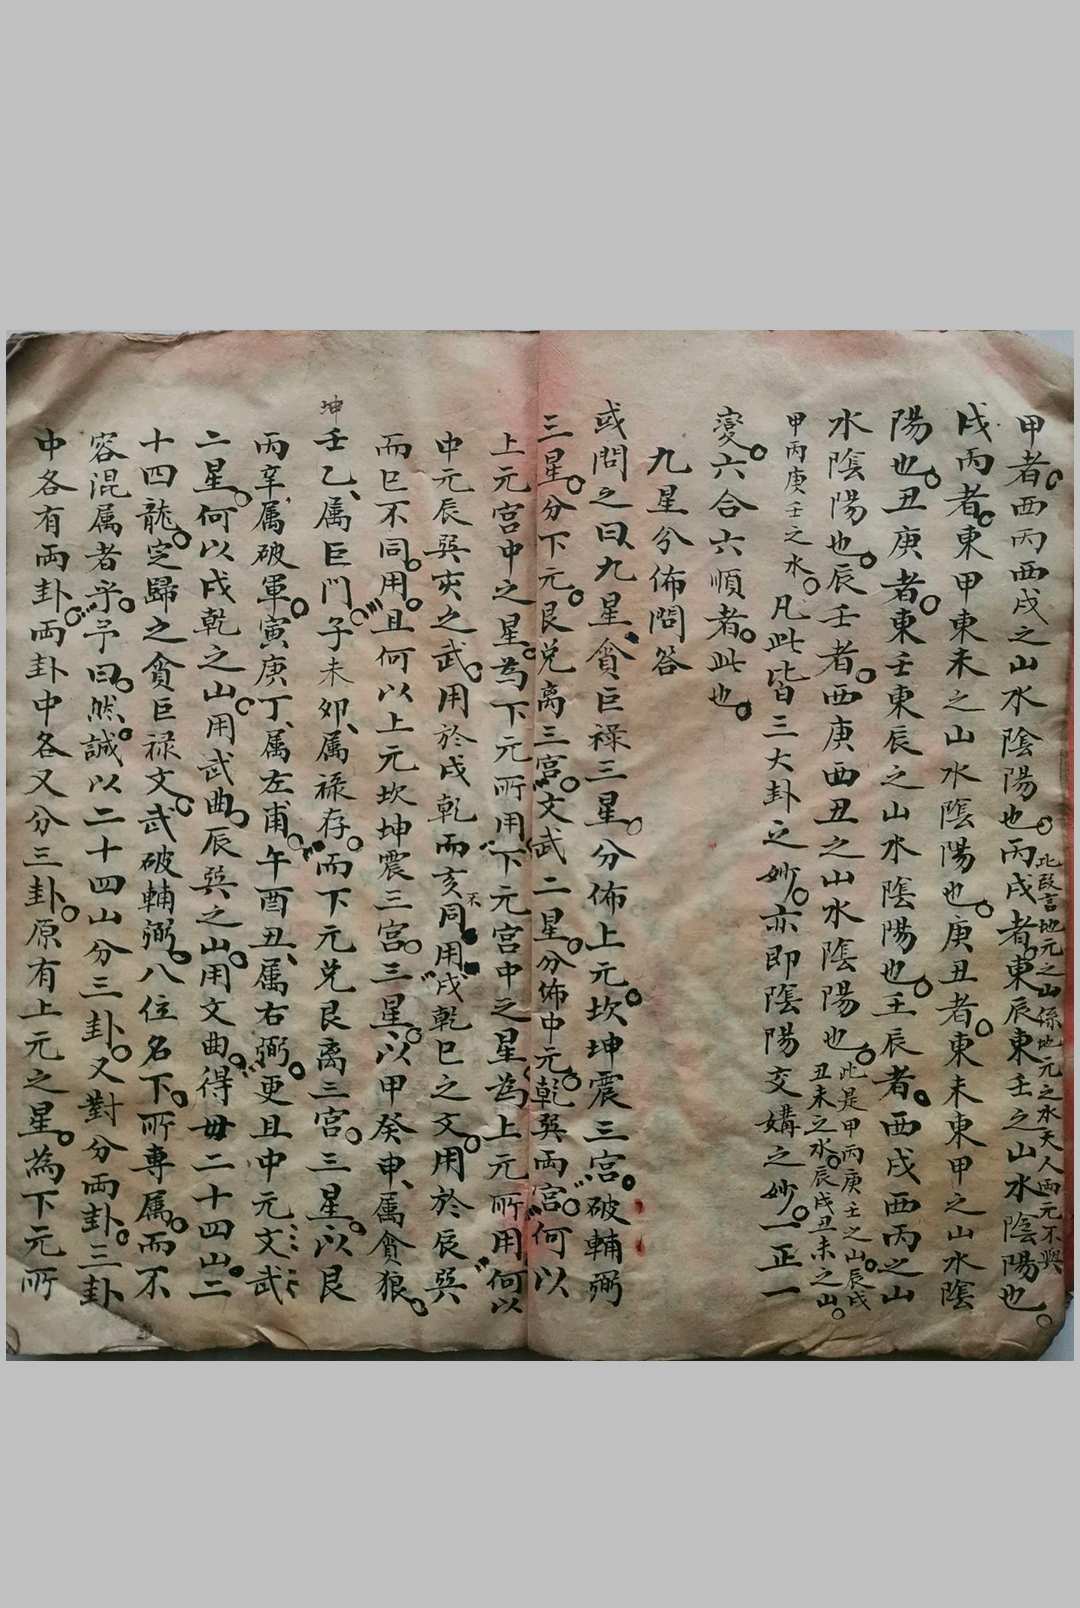 甲者。西丙西戌之山水陰陽也。丙戌者。東辰東壬之山水陰陽也。
此段言地元之山係地元之水天人両元不與
戌丙者。東甲東未之山水陰陽也。庚丑者。東未東甲之山水陰
陽也。丑庚者。東壬東辰之山水陰陽也。壬辰者。西戌西丙之山
水陰陽也。辰壬者。西庚西丑之山水陰陽也。
此是甲丙庚壬之山。辰戌
丑未之水。辰戌丑未之山。
甲丙庚壬之水。凡此皆三大卦之妙。亦即陰陽交媾之妙。一正一
変。六合六順者。此也。
九星分佈問答
或問之曰、九星、貪巨祿三星。分佈上元。坎坤震三宮。破輔弼
三星。分下元。艮兌离三宮。文武二星。分佈中元。乾巽両宮。何以
上元宮中之星。為下元所用。下元宮中之星、為上元所用。何以
中元辰巽亥之武。用於戌乾而亥不同。用戌乾巳之文。用於辰巽
而巳不同。用。且何以上元坎坤震三宮。三星。以甲癸申、属貪狼。
坤壬乙、属巨門。子未卯、属祿存。而下元兌艮离三宮。三星。以艮
丙辛、属破軍。寅庚丁、属左甫。午酉丑、属右弼。更且中元文武
二星。何以戌乾之山。用武曲。辰巽之山。用文曲。得毋二十四山。二
十四龍。定歸之貪巨祿文。武破輔弼。八位名下。所専属。而不
容混属者乎。予曰。然。誠以二十四山分三卦。又對分両卦。三卦
中各有両卦。両卦中各又分三卦。原有上元之星。為下元所